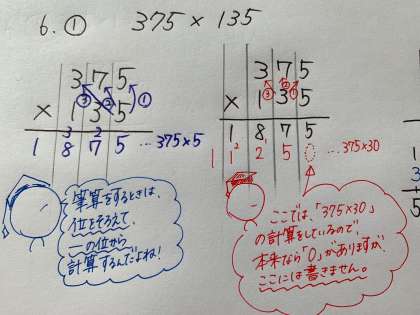 6. ① 375 × 135
375
× 135
③ ② ①
3 2
1875 …375×5
筆算をするときは、
位をそろえて、
一の位から
計算するんだよね!
375
③ ② ①
× 135
1875
1 1 2 5 0 …375×30
ここでは、「375×30」
の計算をしているので、
本来なら「0」がありますが、
ここには書きません。